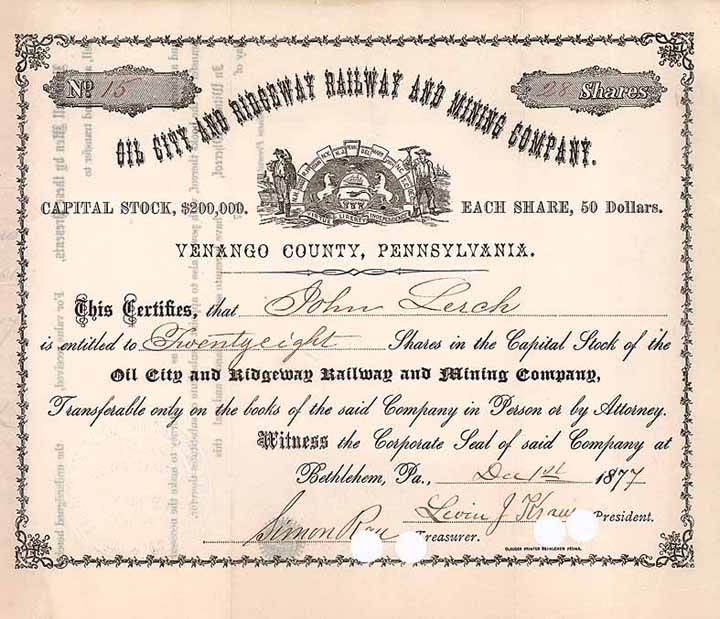 No 15
28 Shares
OIL CITY AND RIDGEWAY RAILWAY AND MINING COMPANY.
CAPITAL STOCK, $200,000.
EACH SHARE, 50 Dollars.
VIRTUE LIBERTY INDEPENDENCE
VENANGO COUNTY, PENNSYLVANIA.
This Certifies, that John Lerch
is entitled to Twentyeight Shares in the Capital Stock of the
Oil City and Ridgeway Railway and Mining Company,
Transferable only on the books of the said Company in Person or by Attorney.
Witness the Corporate Seal of said Company at
Bethlehem, Pa., Dec 1st 1877
Levin J President.
Simon Rau Treasurer.
PRINTER BETHLEHEM PENNA.